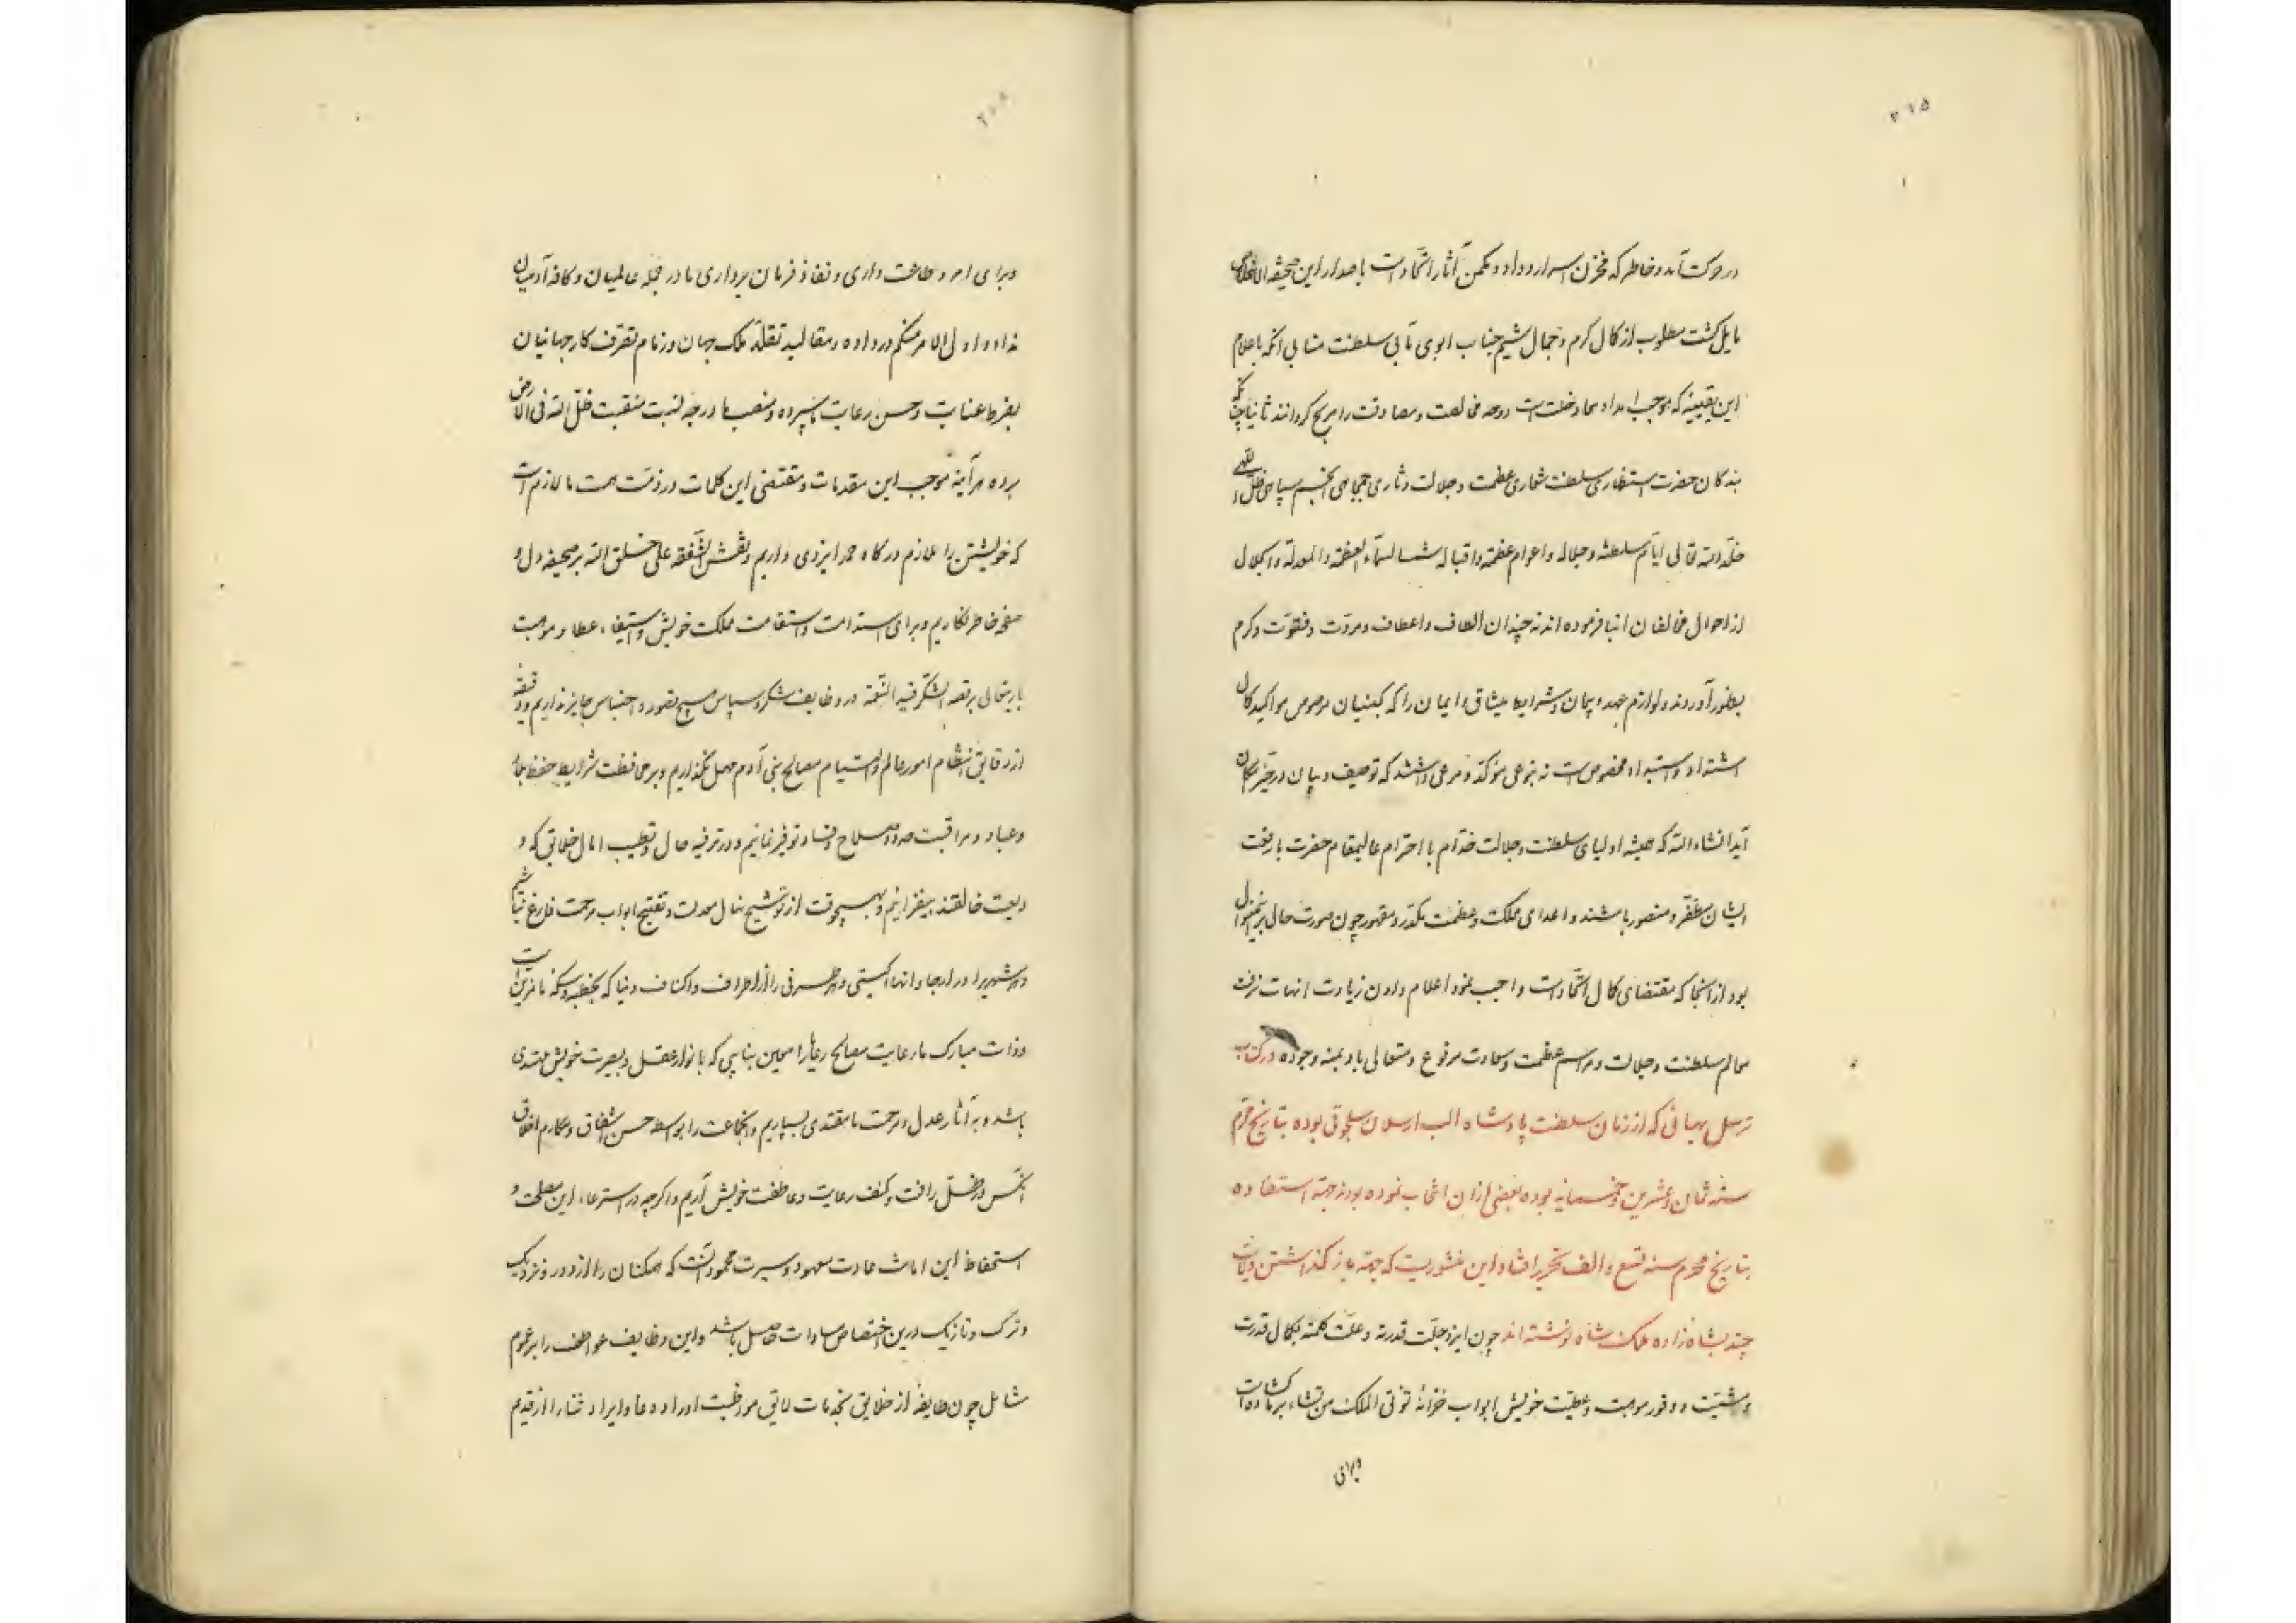 ۲۱۵
در حرکت آمد و خاطر که مخزن اسرار وداد و مکمن آثار اتحاد است باصدار این
مایل کشت مطلوب از کمال کرم و جمال شیم جناب ابوی مآبی سلطنت منابی آنکه باعلام
این که موجب امداد است دوحه مخالصت و مصادقت را کردانند ثانیا
بندکان حضرت سلطنت شعاری عظمت و جلالت دثاری انجم سپاهی
خلد الله تعالی ایام سلطنته و جلاله و اعوام عظمته و اقباله لسماء العظمة و المعدلة و الجلال
از احوال مخالفان انها فرموده اند نه چندان الطاف و اعطاف و مروت و فتوت و کرم
بظهور آوردند و لوازم عهد و پیمان و شرایط میثاق و ایمان را که
اشتداد و استبداد مخصوص است نه بنوعی مؤکد و مرعی داشتند که توصیف و بیان در حیز امکان
آید انشاء الله که همیشه اولیای سلطنت و جلالت خدام با احترام عالیمقام حضرت با رفعت
ایشان مظفر و منصور باشند و اعدای مملکت و عظمت مکدر و مقهور چون صورت حال برینمنوال
بود از آنجا که مقتضای کمال اتحاد است واجب نمود اعلام دادن زیادت انهات نرفت
معالم سلطنت و جلالت و مراسم عظمت و سعادت مرفوع و متعالی باد بمنه وجوده در کتاب
ترسل که از زمان سلطنت پادشاه الب ارسلان سلجوقی بوده بتاریخ محرم
سنه ثمان و عشرین و خمسمایه بوده بعضی از آن انتخاب نموده بودند جهة استفاده
بتاریخ محرم سنه تسع و الف تحریر افتاد این منشوریست که جهة باز کذاشتن ولایت
چند بشاه زاده ملک شاه نوشته اند چون ایزد جلت قدرته و علت کلمته بکمال قدرت
و مشیت و وفور موهبت و عطیت خویش ابواب خزانه تؤتی الملک من تشاء بر ما کشاده است
و برای امر و طاعت داری و نفاذ فرمان برداری ما در جمله عالمیان و کافه آدمیان
نداء و اولی الامر منکم در داده و مقالید تقلد ملک جهان و زمام تصرف کار جهانیان
بفرط عنایت و حسن رعایت ما سپرده و منصب ما درجه منقبت ظل الله فی الارض
برده هر آینه موجب این مقدمات و مقتضی این کلمات در ذمت همت ما لازم است
که خویشتن را ملازم درکاه حمد ایزدی داریم و نقش الشفقه علی خلق الله بر صحیفه دل و
صفحه خاطر نکاریم و برای استدامت و استقامت مملکت خویش و استیفاء عطا و موهبت
باریتعالی در وظایف شکر و سپاس هیچ قصور و احتباس جایز نداریم و دقیقه
از دقایق انتظام امور عالم و التیام مصالح بنی آدم مهمل نکذاریم و بر محافظت شرایط حفظ بلاد
و عباد و مراقبت صلاح و فساد توفیر نمائیم و در ترفیه حال و تطییب آمال خلایق که و
دیعت خالقند بیفزائیم و بهیچوقت از ترشیح نهال معدلت و تفتیح ابواب مرحمت فارغ نباشیم
و هر شهری را در ارجاء و انهاء کیتی و هر طرفی را از اطراف و اکناف دنیا که بخطبه و سکه ما مزین است
و ذات مبارک ما رعایت مصالح رعایا را معین بنایبی که بانوار عقل و بصیرت خویش مهتدی
باشد و بآثار عدل و مرحمت ما مقتدی بسپاریم و آنجماعت را بواسطه حسن اشفاق و مکارم اخلاق
آنکس در ظل رافت و کنف رعایت و عاطفت خویش آریم و اکرچه در استرعاء این مصلحت و
استحفاظ این امانت عادت معهود و سیرت محمود آنست که همکنان را از دور و نزدیک
و ترک و تازیک درین اختصاص مساوات حاصل باشد و این وظایف عواطف را بر عموم
شامل چون طایفه از خلایق بخدمات لایق مواظبت اوراد دعا و ایراد ثنا را از قدیم